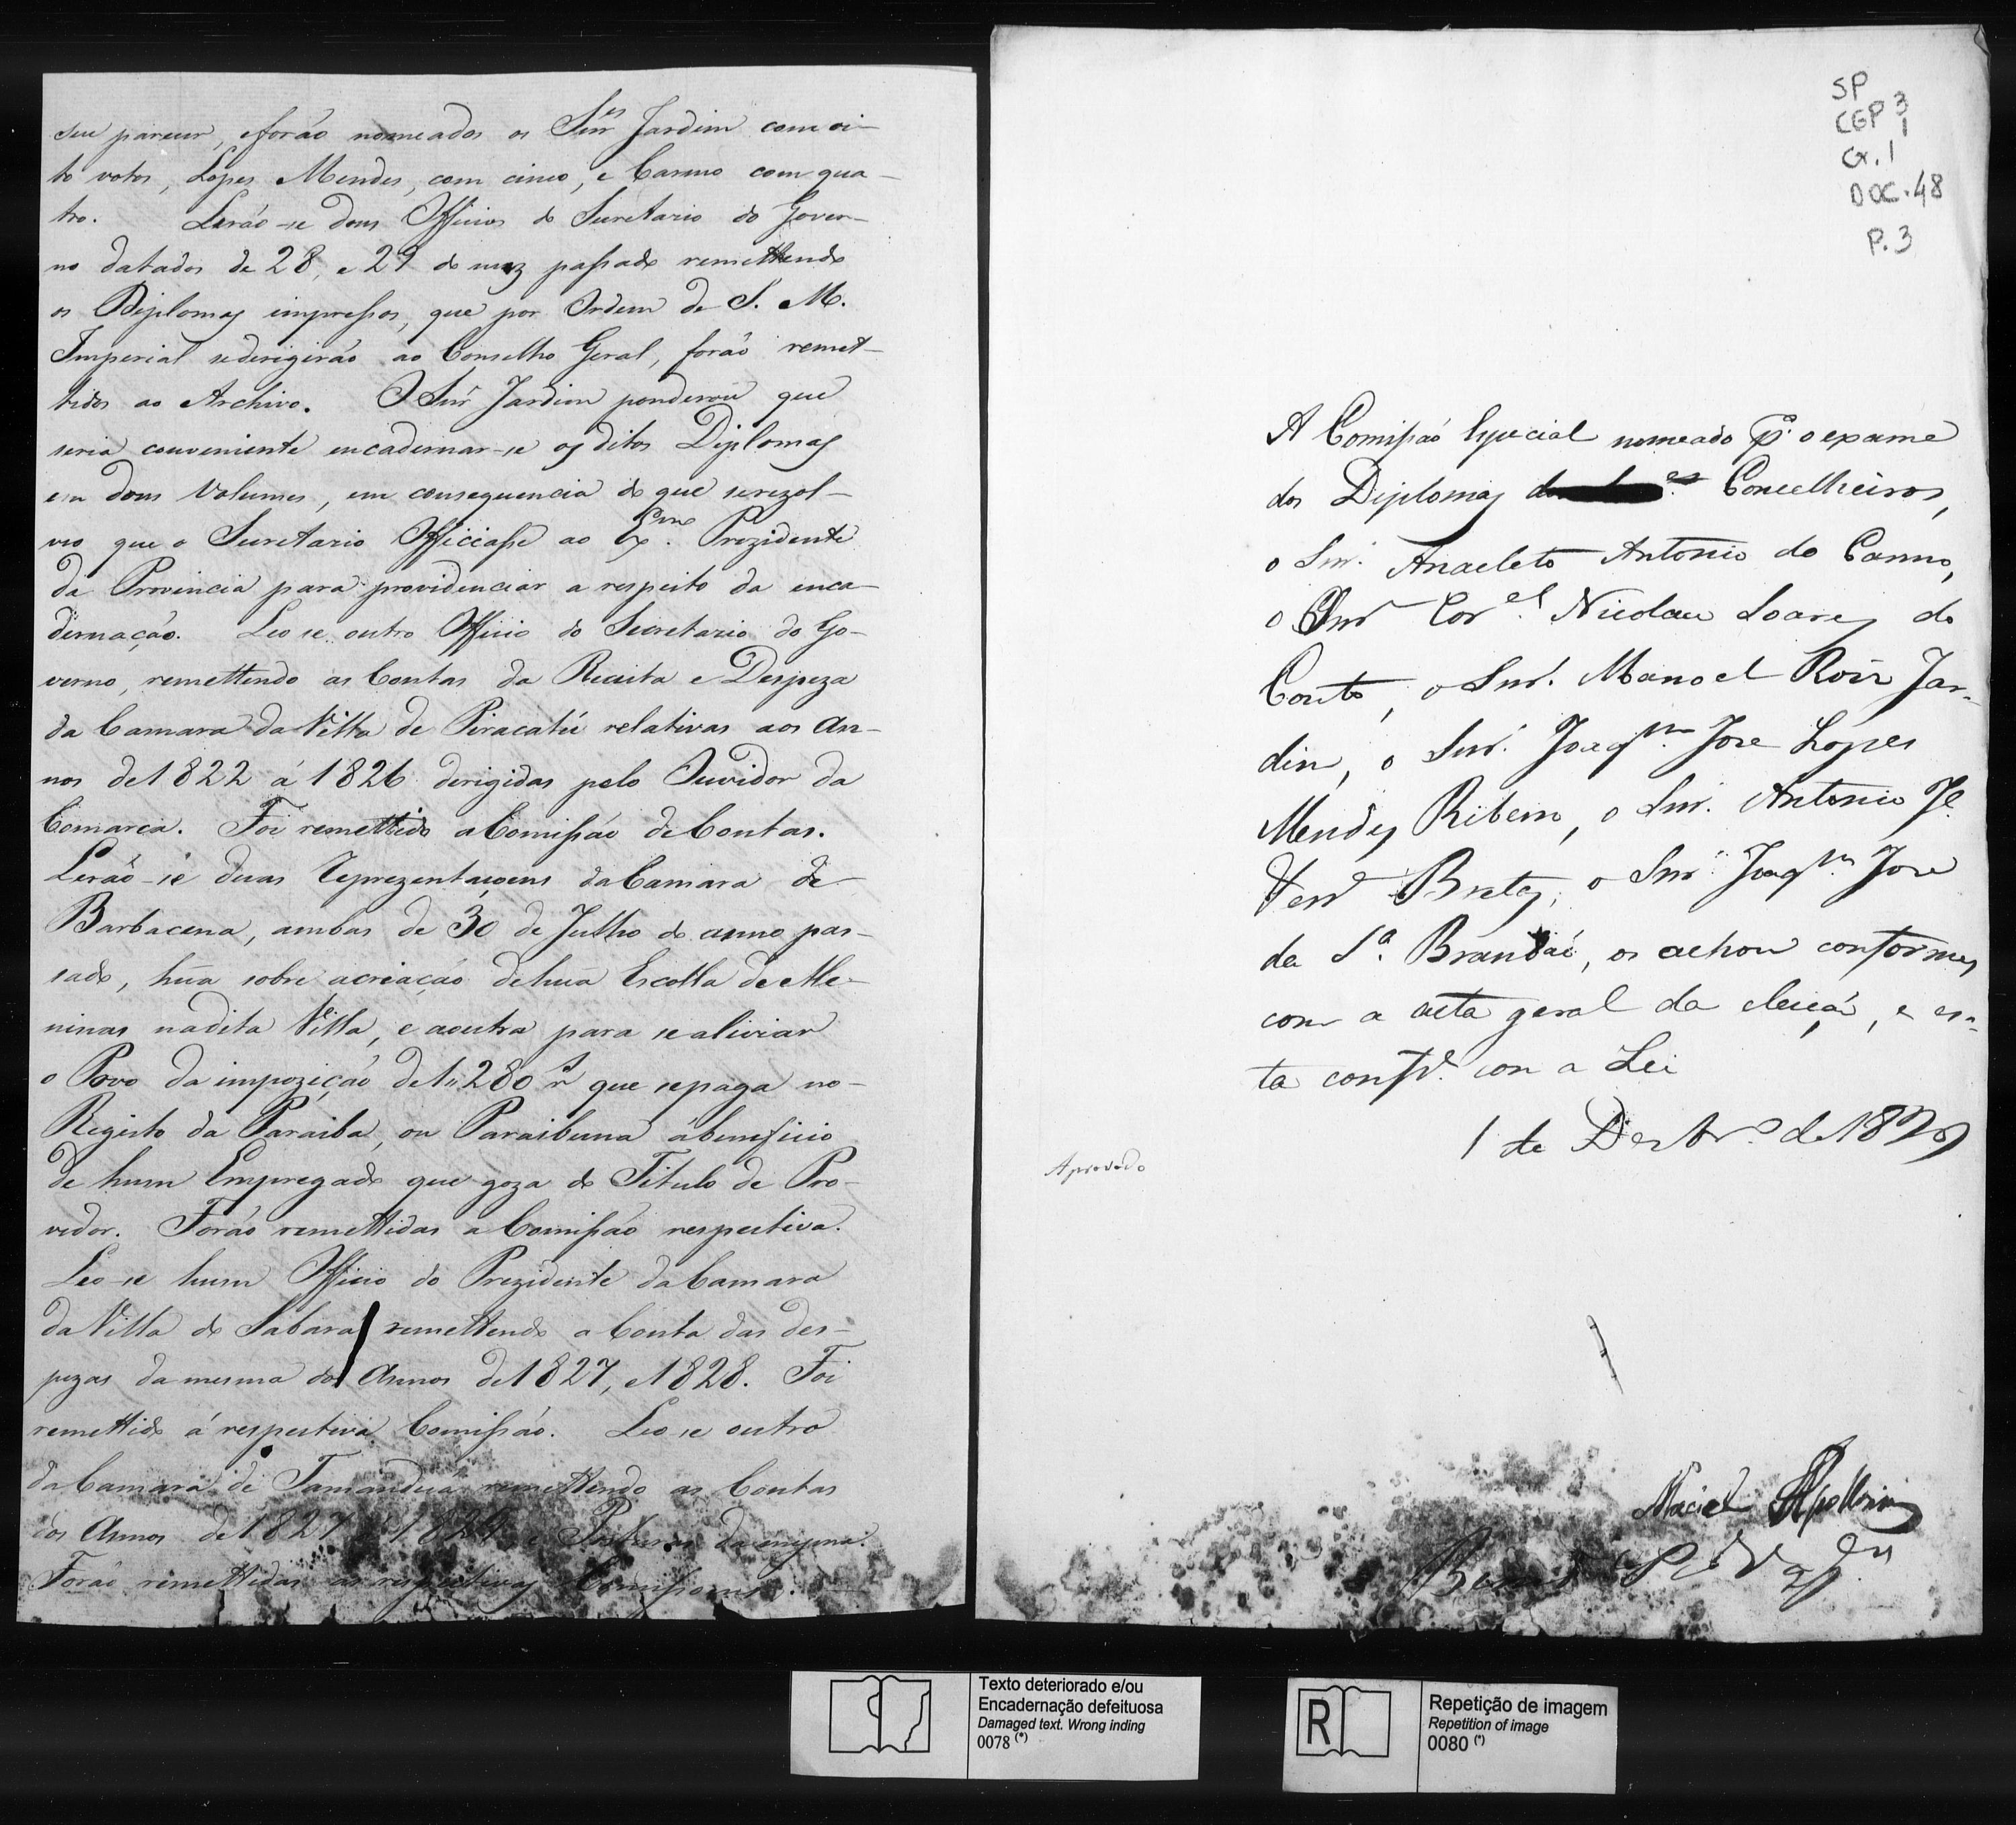 seu parecer, eforão nomeados os Snr.es Jardim com oi-
to votos, Lopes Mendes, com cinco, e Carmo com qua-
tro. Lerão-se dous Officios do Secretario do Gover-
no datados de 28, e 29 do mez passado remettendo
os Diplomas impressos, que por Ordem de S. M.
Imperial sederigirão ao Conselho Geral, forão remet-
tidos ao Archivo. O Snr Jardim ponderou que
seria conveniente encadernar-se os ditos Diplomas
em dous Volumes, em consequencia do que serezol-
veo que o Secretario Officiasse ao Ex.mo Prezidente
da Provincia para providenciar a respeito da enca-
dernação. Leo se outro Officio do Secretario do Go-
verno, remettendo as Contas da Receita e Despeza
da Camara da Villa de Piracatú relativas aos An-
nos de 1822 á 1826 derigidas pelo Ouvidor da
Comarca. Foi remettido a Comissão de Contas.
Lerão-se duas Reprezentaçoens da Camara de
Barbacena, ambas de 30 de Julho do anno pas-
sado, hũa sobre acriação dehũa Escolla de Me-
ninas nadita Villa, e aoutra para se aliviar
o Povo da impozição de 1"280 r que sepaga no-
Registo da Paraiba, ou Paraibuna ábeneficio
de hum Empregado que goza do Titulo de Pro-
vedor. Forão remettidas a Comissão respectiva.
Leo-se hum Officio do Prezidente da Camara
da Villa do Sabará remettendo a Conta das des-
pezas da mesma dos Annos de 1827, e 1828. Foi
remettido á respectiva Comissão. Leo-se outro
da Camara de Tamanduá remettendo as Contas
dos Annos de 1827 e Posturas da mesma.
Forão remettidas as respectivas Comissoens.
SP
CGP 3
1
Cx. 1
DOC. 48
P. 3
A Comissão Especial nomeado p.a o exame
dos Diplomas Concelheiros,
o Snr. Anacleto Antonio do Carmo,
o Snr Cor.el Nicolau Soares do
Couto, o Snr. Manoel Roiz Jar-
dim, o Snr. Joaq.m Jose Lopes
Mendes Ribeiro, o Snr. Antonio Je.
o Snr. Joaq.m Jose
da S.a Brandão, os achou conformes
com a acta geral da eleição, e es-
ta conf.e con a Lei
1 de Dezbr.o de 1829
Aprovado
Maciel
Texto deteriorado e/ou
Encadernação defeituosa
Damaged text. Wrong inding
0078 (*)
R
Repetição de imagem
Repetition of image
0080 (*)